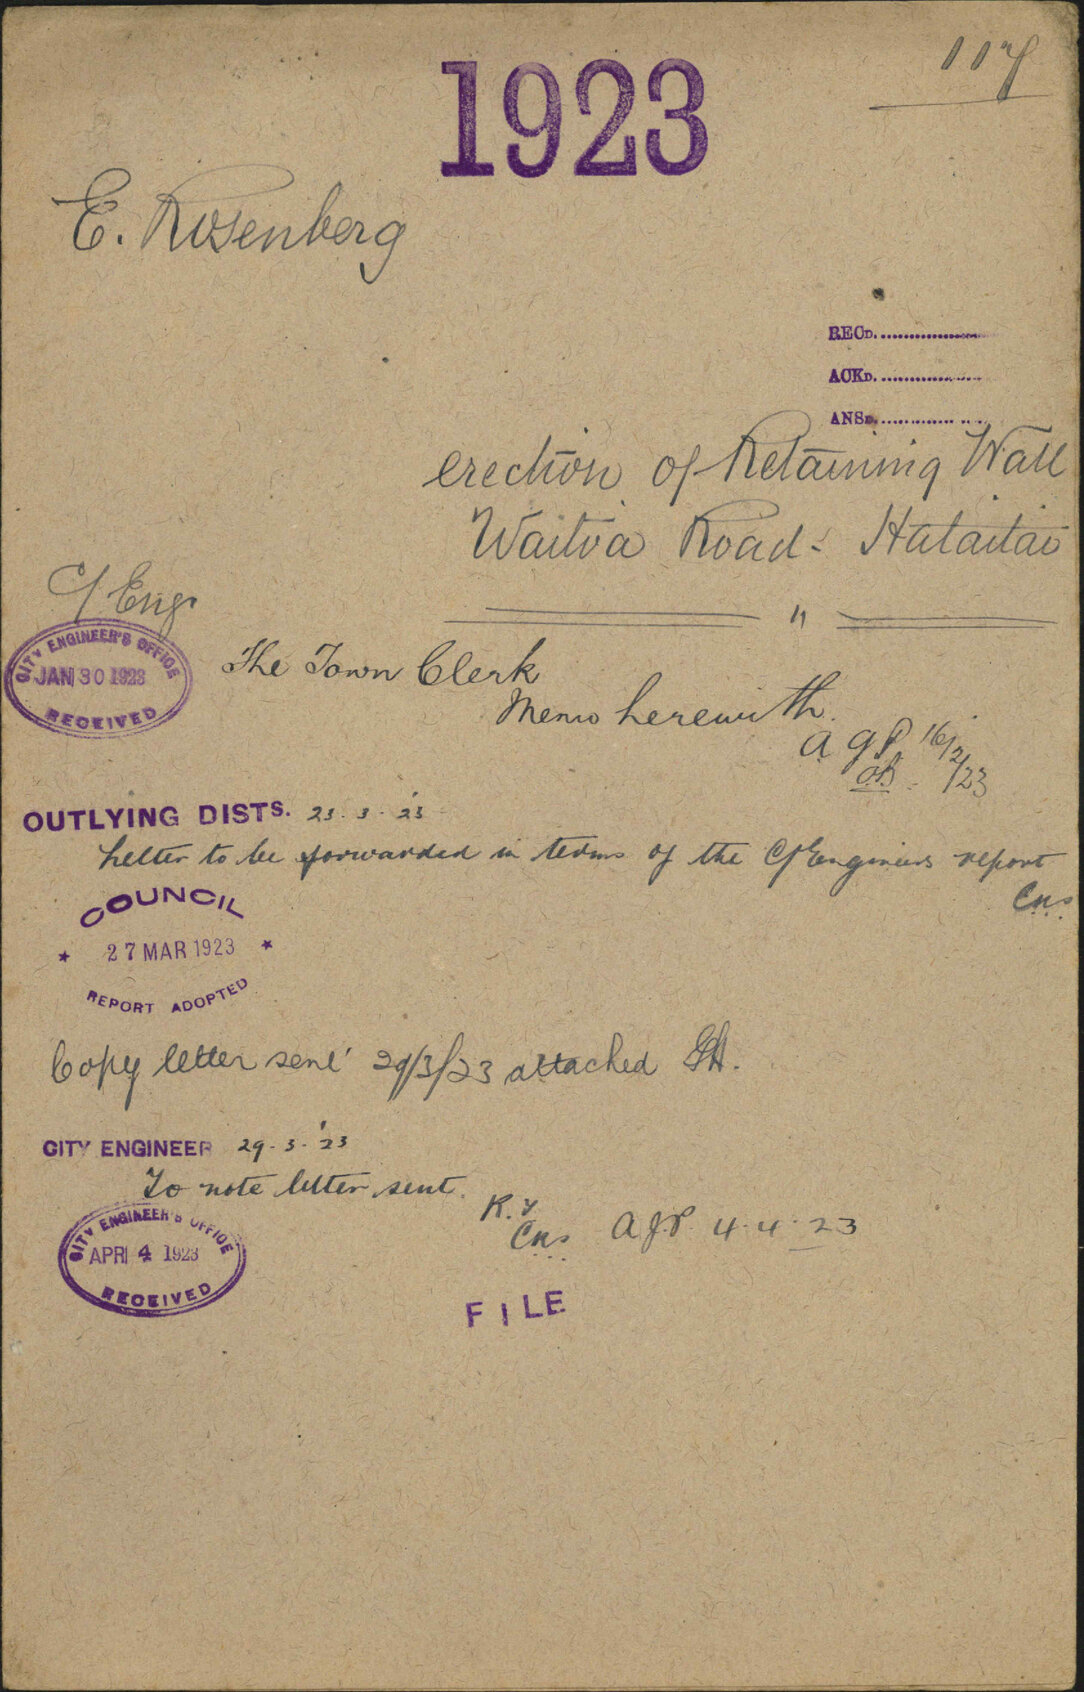 117
1923
E. Rosenberg
RECD.
ACKD.
ANSD.
erection of Retaining Wall
Waitoa Road - Hataitai
"
C/Engr
CITY ENGINEER'S OFFICE
JAN 30 1923
RECEIVED
The Town Clerk
Memo herewith.
16/2/23
OUTLYING DISTS. 23.3.'23
Letter to be forwarded in terms of the C/Engineers report
COUNCIL
27 MAR 1923
REPORT ADOPTED
Copy letter sent 29/3/23 attached
CITY ENGINEER 29.3.'23
To note letter sent.
CITY ENGINEER'S OFFICE
APR 4 1923
RECEIVED
AJP. 4.4.23
FILE